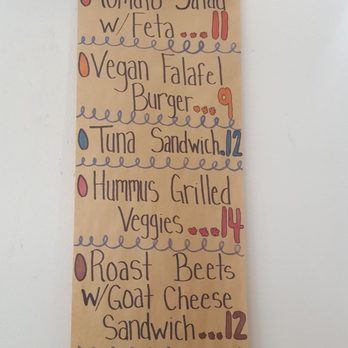 Tomato Salad
w/Feta...11
Vegan Falafel
Burger...9
Tuna Sandwich.12
Hummus Grilled
Veggies...14
Roast Beets
w/Goat Cheese
Sandwich...12